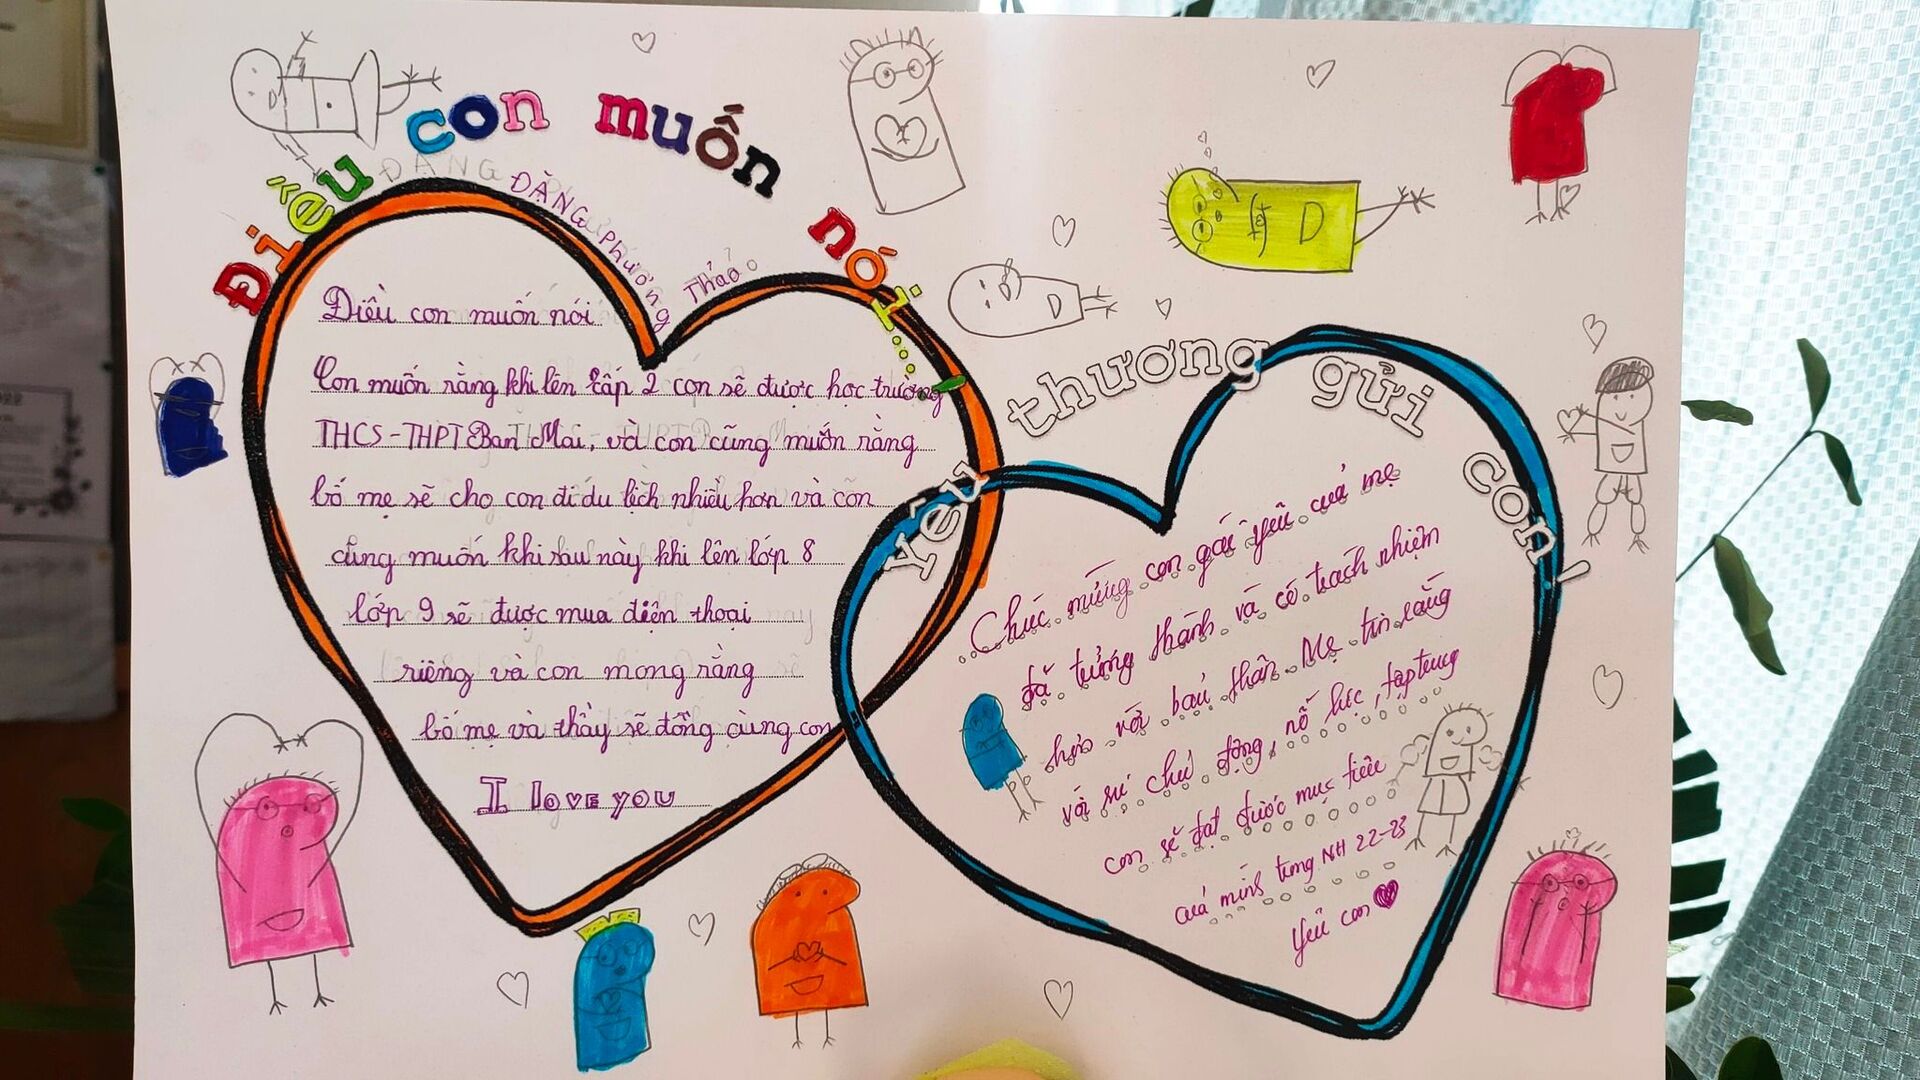 Điều con muốn nói...!
ĐẶNG ĐẶNG Phương Thảo
Điều con muốn nói
Con muốn rằng khi lên cấp 2 con sẽ được học trường
THCS-THPT Ban Mai, và con cũng muốn rằng
bố mẹ sẽ cho con đi du lịch nhiều hơn và con
cũng muốn khi sau này khi lên lớp 8
lớp 9 sẽ được mua điện thoại
riêng và con mong rằng
bố mẹ và thầy sẽ đồng cùng con
I love you
Yêu thương gửi con!
Chúc mừng con gái yêu của mẹ
đã trưởng thành và có trách nhiệm
hơn với bản thân. Mẹ tin rằng
với sự chủ động, nỗ lực, tập trung
con sẽ đạt được mục tiêu
của mình trong NH 22-23
Yêu con
D
D
D